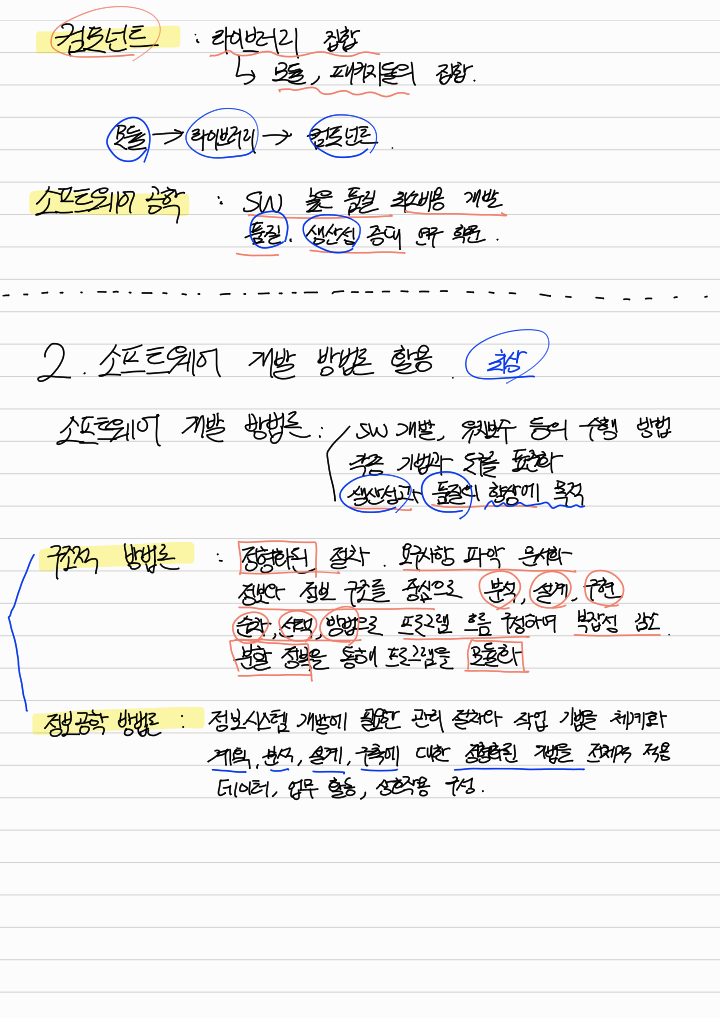 컴포넌트 : 라이브러리 집합
↳ 모듈, 패키지들의 집합.
모듈 → 라이브러리 → 컴포넌트.
소프트웨어 공학 : SW 높은 품질 최소비용 개발
품질, 생산성 증대 연구 학문.
2. 소프트웨어 개발 방법론 활용. 최상
소프트웨어 개발 방법론 : SW 개발, 유지보수 등의 수행 방법
각종 기법과 도구를 표준화
생산성과 품질의 향상에 목적
구조적 방법론 : 정형화된 절차. 요구사항 파악 문서화
정보와 정보 구조를 중심으로 분석, 설계, 구현
순차, 선택, 방법으로 프로그램 흐름 구성하여 복잡성 감소.
분할 정복을 통해 프로그램을 모듈화
정보공학 방법론 : 정보시스템 개발에 필요한 관리 절차와 작업 기법을 체계화
계획, 분석, 설계, 구축에 대한 정형화된 기법들 전체적 적용
데이터, 업무 활동, 상호작용 구성.